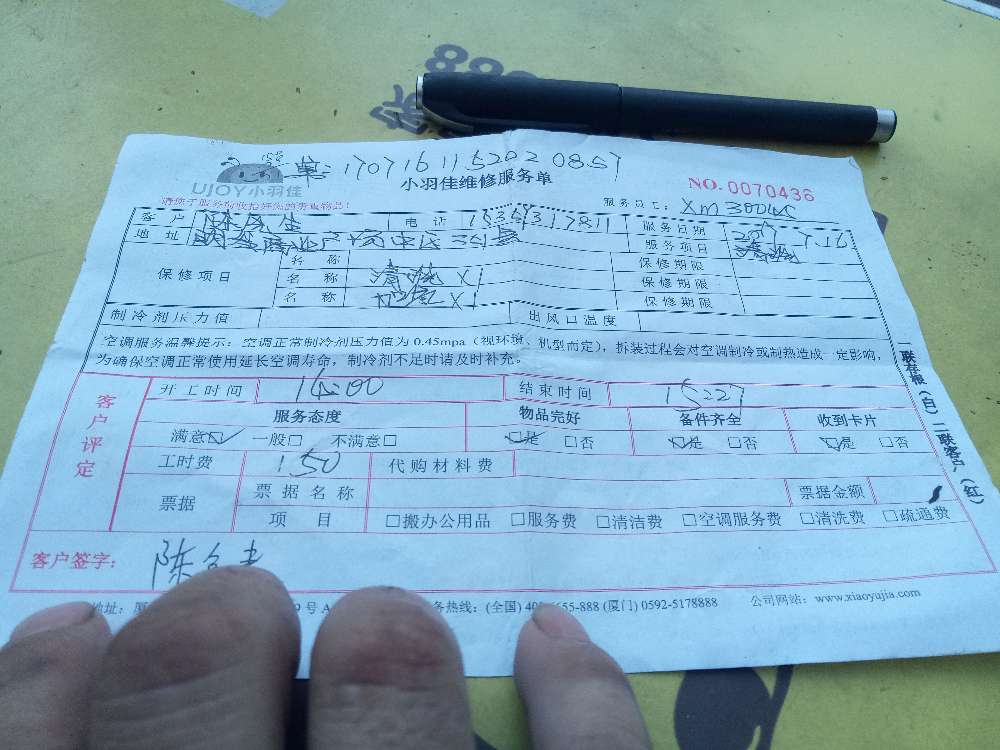 单:170716115202 08:57
UJOY小羽佳
小羽佳维修服务单
NO.0070436
请您于服务前收拾好您的贵重物品!
XM3004C
客户 陈先生 电话 服务日期 2017.7.16
地址 服务项目 清洗
保修项目 名称 保修期限
名称 清洗X1 保修期限
名称 X1 保修期限
制冷剂压力值 出风口温度
空调服务温馨提示:空调正常制冷剂压力值为0.45mpa(视环境、机型而定),拆装过程会对空调制冷或制热造成一定影响,
为确保空调正常使用延长空调寿命,制冷剂不足时请及时补充。
一联存根(白)二联客户(红)
客户评定
开工时间 14:00 结束时间 15:27
服务态度 物品完好 备件齐全 收到卡片
满意☑ 一般□ 不满意□ ☑是 □否 ☑是 □否 ☑是 □否
工时费 150 代购材料费
票据 票据名称 票据金额
项目 □搬办公用品 □服务费 □清洁费 □空调服务费 □清洗费 □疏通费
客户签字: 陈
地址:厦 9号A 务热线:(全国) 655-888 (厦门) 0592-5178888 公司网站:www.xiaoyujia.com